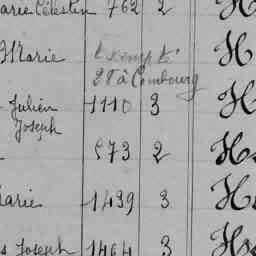 arie Célestin 762 2 H
Marie Exempté H
21 à Combourg
Julien 1110 3 H
Joseph
573 2 H
arie 1439 3 H
s Joseph 1464 3 H